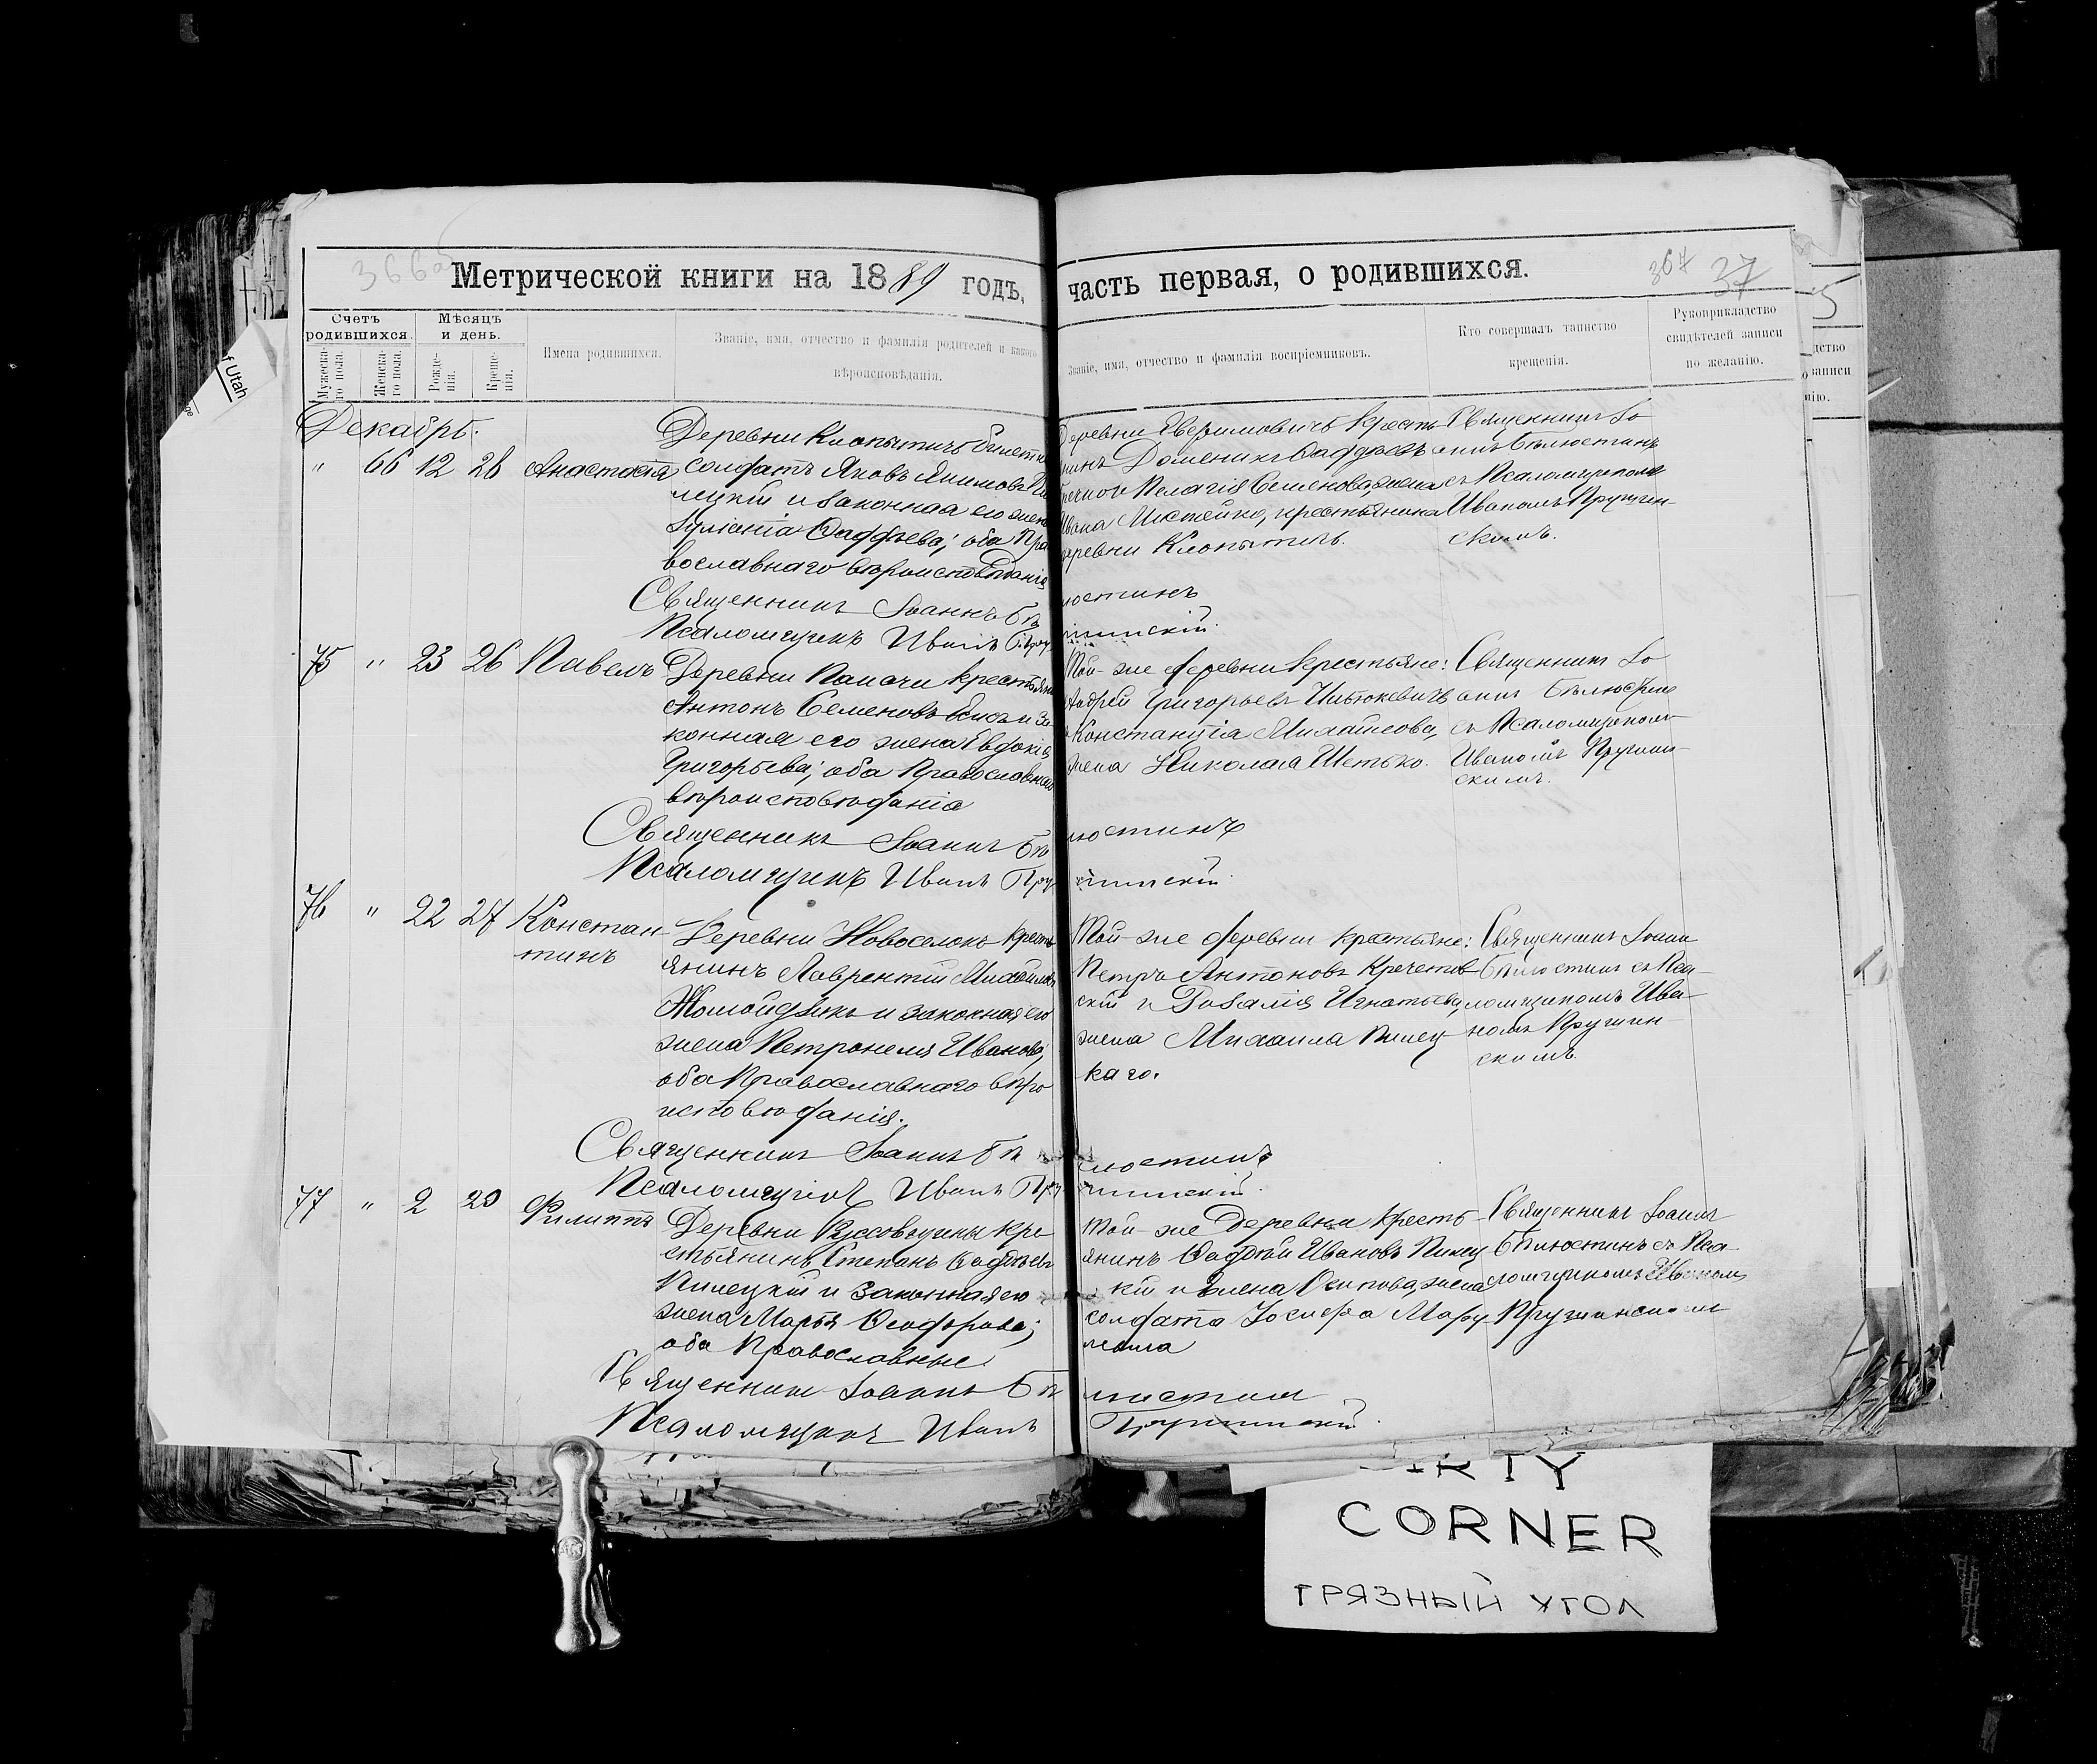 366об
Метрической книги на 1889 годъ,
часть первая, о родившихся.
367 37
Счетъ родившихся.
Мѣсяцъ и день.
Мужеска-го пола.
Женска-го пола.
Рожде-нія.
Креще-нія.
Имена родившихся.
Званіе, имя, отчество и фамилія родителей и какого
вѣроисповѣданія.
Званіе, имя, отчество и фамилія воспріемниковъ.
Кто совершалъ таинство
крещенія.
Рукоприкладство
свидѣтелей записи
по желанію.
Декабрь.
" 66 12 26 Анастасія
Деревни Клопытичъ
солдатъ Яковъ Якимовъ
лецкій и законная его жена
Іуліанія Фаддѣева; оба Пра
вославнаго вѣроисповѣданія
Деревни Кресть
нинъ Доменикъ Фаддѣевъ
Пелагія Семенова, жена
Ивана крестьянина
деревни Клопытичъ.
Священникъ Іо
аннъ Бѣлюстинъ
съ Псаломщикомъ
Иваномъ Пружин-
скимъ.
Священникъ Іоаннъ Бѣ люстинъ
Псаломщикъ Иванъ Пру жинскій.
75 " 23 26 Павелъ
Деревни крестьянинъ
Антонъ Семеновъ и за
конная его жена Евдокія
Григорьева; оба Православнаго
вѣроисповѣданія
Той-же деревни крестьяне:
Андрей Григорьевъ
Констанція Михайлова,
жена Николая Шетько.
Священникъ Іо
аннъ Бѣлюстинъ
съ Псаломщикомъ
Иваномъ Пружин-
скимъ.
Священникъ Іоаннъ Бѣ люстинъ
Псаломщикъ Иванъ Пру жинскій.
76 " 22 27 Констан-
тинъ
Деревни Новоселокъ Кресть
янинъ Лаврентій Михайловъ
Жомойдзикъ и законная его
жена Петронеля Иванова;
оба Православнаго вѣро
исповѣданія.
Той-же деревни крестьяне:
Петръ Антоновъ Кречетов
скій и Розалія Игнатьева,
жена Михаила Пилец-
каго.
Священникъ Іоаннъ
Бѣлюстинъ съ Пса-
ломщикомъ Ива-
номъ Пружин-
скимъ.
Священникъ Іоаннъ Бѣ люстинъ
Псаломщикъ Иванъ Пру жинскій.
77 " 2 20 Филиппъ
Деревни Руссовщины кре
стьянинъ Степанъ Фаддѣевъ
Пилецкій и законная его
жена Марья Феодорова;
оба Православные.
Той-же Деревни Кресть-
янинъ Фаддѣй Ивановъ Пилец
кій и Елена Осипова, жена
солдата Іосифа
Священникъ Іоаннъ
Бѣлюстинъ съ Пса-
ломщикомъ Иваномъ
Пружинскимъ
Священникъ Іоаннъ Бѣ люстинъ
Псаломщикъ Иванъ Пружинскій.
f Utah
5
RTY
CORNER
ГРЯЗНЫЙ УГОЛ